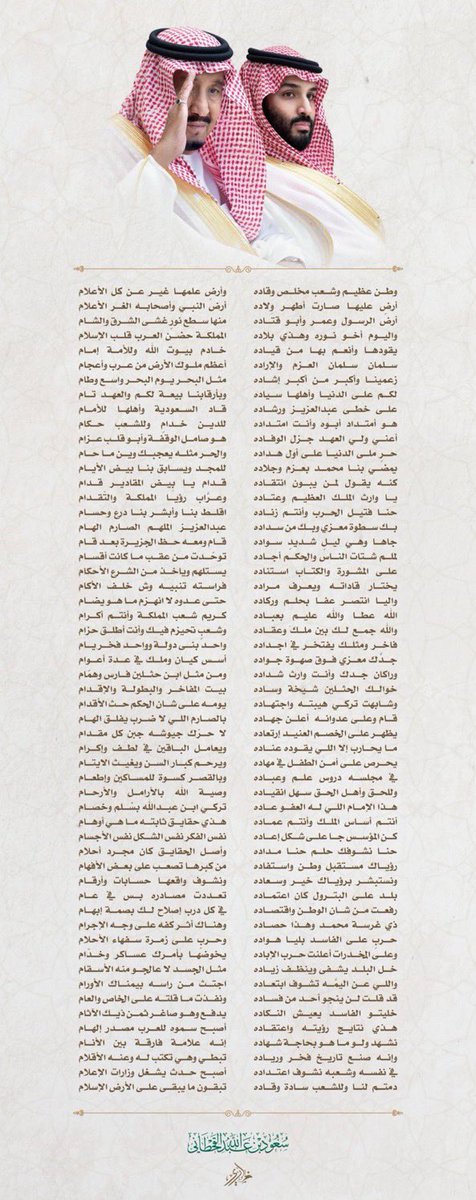 وطن عظيم وشعب مخلص وقاده وأرض علمها غير عن كل الأعلام
أرض عليها صارت أطهر ولاده أرض النبي وأصحابه الغر الأعلام
أرض الرسول وعمر وأبو قتاده منها سطع نور غشى الشرق والشام
واليوم أخو نوره وهذي بلاده المملكة حضن العرب قلب الإسلام
يقودها وأنعم بها من قياده خادم بيوت الله وللأمة إمام
سلمان سلمان العزم والإراده أعظم ملوك الأرض من عرب وأعجام
زعمينا وأكبر من أكبر إشاده مثل البحر يوم البحر واسع وطام
لكم على الدنيا وأهلها سياده وبأرقابنا بيعة لكم والعهد تام
على خطى عبدالعزيز ورشاده قاد السعودية وأهلها للأمام
هو أمتداد أبوه وأنت امتداده للدين خدام وللشعب حكام
أعني ولي العهد جزل الوفاده هو صامل الوقفة وأبو قلب عزام
حر ملى الدنيا على أول هداده والحر مثله يعجبك وين ما حام
يمضي بنا محمد بعزم وجلاده للمجد ويسابق بنا بيض الأيام
كنه يقول لمن يبون انتقاده قدام يا بيض المقادير قدام
يا وارث الملك العظيم وعتاده وعراب رؤيا المملكة والتقدام
حنا فتيل الحرب وأنتم زناده اقلط بنا وأبشر بنا درع وحسام
بك سطوة معزي وبك من سداده عبدالعزيز الملهم الصارم الهام
جاها وهي ليل شديد سواده قام ومعه حظ الجزيرة بعد قام
لملم شتات الناس والحكم أجاده توحدت من عقب ما كانت أقسام
على المشورة والكتاب استناده يستلهم وياخذ من الشرع الأحكام
يختار قاداته ويعرف مراده فراسته تنبيه وش خلف الأكام
واليا انتصر عفا بحلم وركاده حتى عدوه لا انهزم ما هو يضام
الله عطا والله عليم بعباده كريم شعب المملكة وأنتم أكرام
والله جمع لك بين ملك وعقاده وشعب تحيزم فيك وأنت أطلق حزام
فاخر ومثلك يفتخر في اجداده واحد بنى دولة وواحد فخر يام
جدك معزي فوق صهوة جواده أسس كيان وملك في عدة أعوام
وراكان جدك وأنت وارث شداده ومن مثل ابن حثلين فارس وهمام
خوالك الحثلين شيخة وساده بيت المفاخر والبطولة والإقدام
وشابهت تركي هيبته واجتهاده يومه على شان الحكم حث الأقدام
قام وعلى عدوانه أعلن جهاده بالصارم اللي لا ضرب يفلق الهام
يظهر على الخصم العنيد ارتعاده لا حرك جيوشه جين كل مقدام
ما يحارب إلا اللي يقوده عناده ويعامل الباقين في لطف وإكرام
يحرص على أمن الطفل في مهاده ويرحم كبار السن ويغيث الايتام
في مجلسه دروس علم وعباده وبالقصر كسوة للمساكين وإطعام
وللحق وأهل الحق سهل انقياده وصية الله بالأرامل والأرحام
هذا الإمام اللي له العفو عاده تركي ابن عبدالله بسلم وخصام
أنتم أساس الملك وأنتم عماده هذي حقايق ثابته ما هي أوهام
كن المؤسس جا على شكل إعاده نفس الفكر نفس الشكل نفس الأجسام
حنا نشوفك حلم حنا مداده وأصل الحقايق كان مجرد أحلام
رؤياك مستقبل وطن واستفاده من كبرها تصعب على بعض الأفهام
ونستبشر برؤياك خير وسعاده ونشوف واقعها حسابات وأرقام
بلد على البترول كان اعتماده تعددت مصادره بس في عام
رفعت من شان الوطن واقتصاده في كل درب إصلاح لك بصمة إبهام
ذي غرسة محمد وهذا حصاده وهناك أثر كفه على وجه الإجرام
حرب على الفاسد بليا هواده وحرب على زمرة سفهاء الأحلام
وعلى المخدرات أعلنت حرب الاباده يخوضها بأمرك عساكر وخدام
خل البلد يشفى وينظف زياده مثل الجسد لا عالجو منه الأسقام
واللي عن اليمه تشوف ابتعاده اجتث من راسه بيمناك الأورام
قد قلت لن ينجو أحد من فساده ونفذت ما قلته على الخاص والعام
خليتو الفاسد يعيش النكاده يدفع وهو صاغر ثمن ذيك الأثام
هذي نتايج رؤيته واعتقاده أصبح سموه للعرب مصدر إلهام
نشهد ولو ما هو بحاجة شهاده إنه علامة فارقة بين الأنام
وإنه صنع تاريخ فخر ورياده تبطي وهي تكتب له وعنه الأقلام
في نفسه وشعبه نشوف اعتداده أصبح حدث يشغل وزارات الإعلام
دمتم لنا وللشعب سادة وقاده تبقون ما يبقى على الأرض الإسلام
سعود بن عبدالله القحطاني